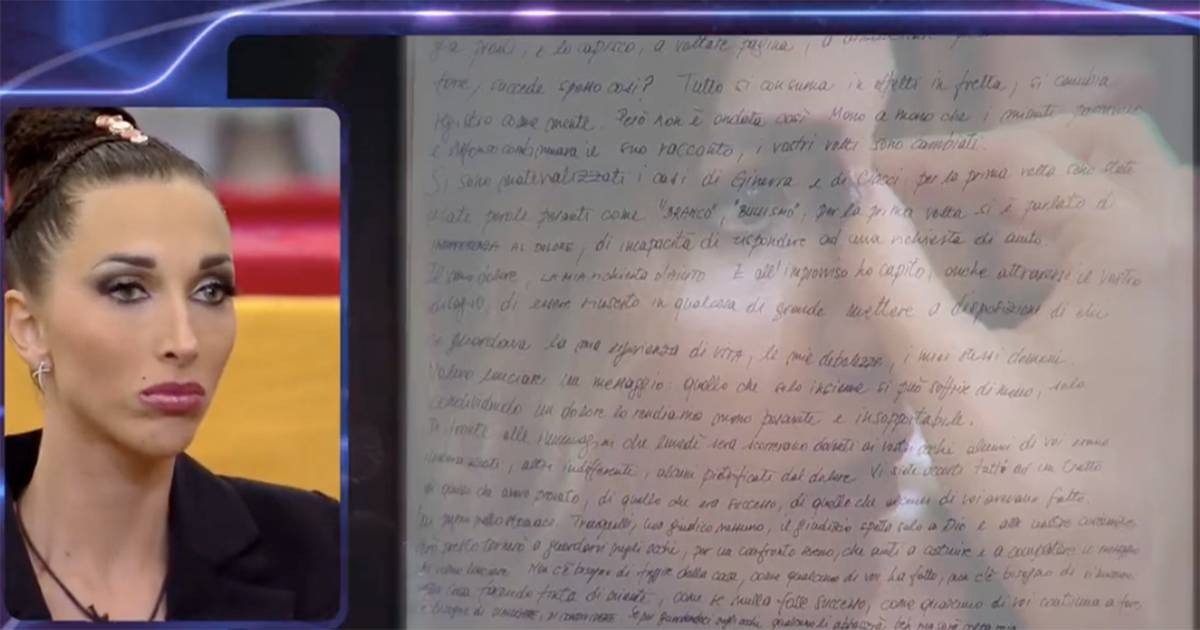 già pronti, e lo capisco, a voltare pagina, a
forse, succede spesso così? Tutto si consuma in effetti in fretta, si cambia
registro come niente. Però non è andata così. Mano a mano che i minuti passavano
e Alfonso continuava il suo racconto, i vostri volti sono cambiati.
Si sono materializzati i casi di Ginevra e di Ciacci, per la prima volta sono state
usate parole pesanti come "BRANCO", "BULLISMO", per la prima volta si è parlato di
INDIFFERENZA AL DOLORE, di incapacità di rispondere ad una richiesta di aiuto.
Il mio dolore, LA MIA richiesta d'AIUTO. E all'improvviso ho capito, anche attraverso il vostro
disagio, di essere riuscito in qualcosa di grande mettere a disposizione di chi
ci guardava la mia esperienza di VITA, le mie debolezze, i miei stessi demoni.
Volevo lanciare un messaggio: quello che solo insieme si può soffrire di meno, solo
condividendo un dolore lo rendiamo meno pesante e insopportabile.
Di fronte alle immagini che lunedì sera scorrevano davanti ai vostri occhi alcuni di voi erano
, altri indifferenti, alcuni pietrificati dal dolore. Vi siete accorti tutto ad un tratto
di quello che avevo provato, di quello che era successo, di quello che alcuni di voi avevano fatto.
Tranquilli, non giudico nessuno, il giudizio spetta solo a Dio e alle vostre coscienze
presto tornerò a guardarvi negli occhi, per un confronto sereno, che aiuti a costruire e a completare il messaggio
Non c'è bisogno di fuggire dalla casa, come qualcuno di voi ha fatto, non c'è bisogno di rimanere
casa facendo finta di niente, come se nulla fosse successo, come qualcuno di voi continua a fare
c'è bisogno di